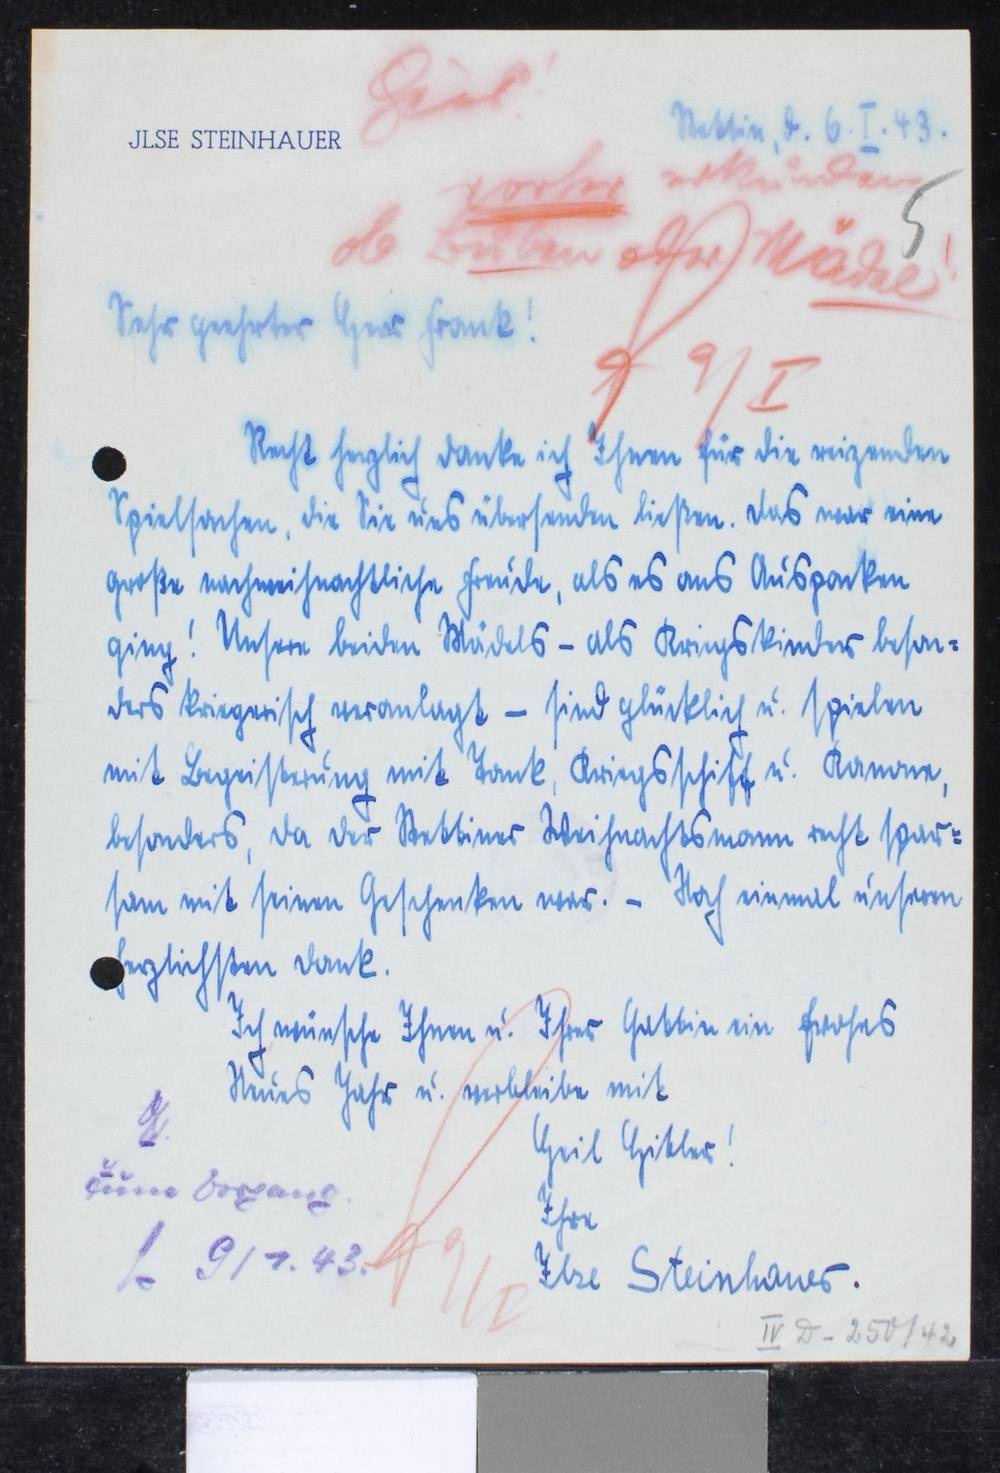 Heil!
JLSE STEINHAUER
Stettin, d. 6.I.43.
vorher erkunden
5
ob Buben oder Mädel!
Sehr geehrter Herr Frank!
9/I
Recht herzlich danke ich Ihnen für die reizenden
Spielsachen, die Sie uns übersenden ließen. Das war eine
große nachweihnachtliche Freude, als es ans Auspacken
ging! Unsere beiden Mädels – als Kriegskinder beson=
ders kriegerisch veranlagt – sind glücklich u. spielen
mit Begeisterung mit Tank, Kriegsschiff u. Kanone,
besonders, da der Stettiner Weihnachtsmann recht spar=
sam mit seinen Geschenken war. – Noch einmal unseren
herzlichsten Dank.
Ich wünsche Ihnen u. Ihrer Gattin ein frohes
Neues Jahr u. verbleibe mit
Heil Hitler!
zum Vorgang.
Ihre
9/1.43.
9/I
Ilse Steinhauer.
IV D - 250/42